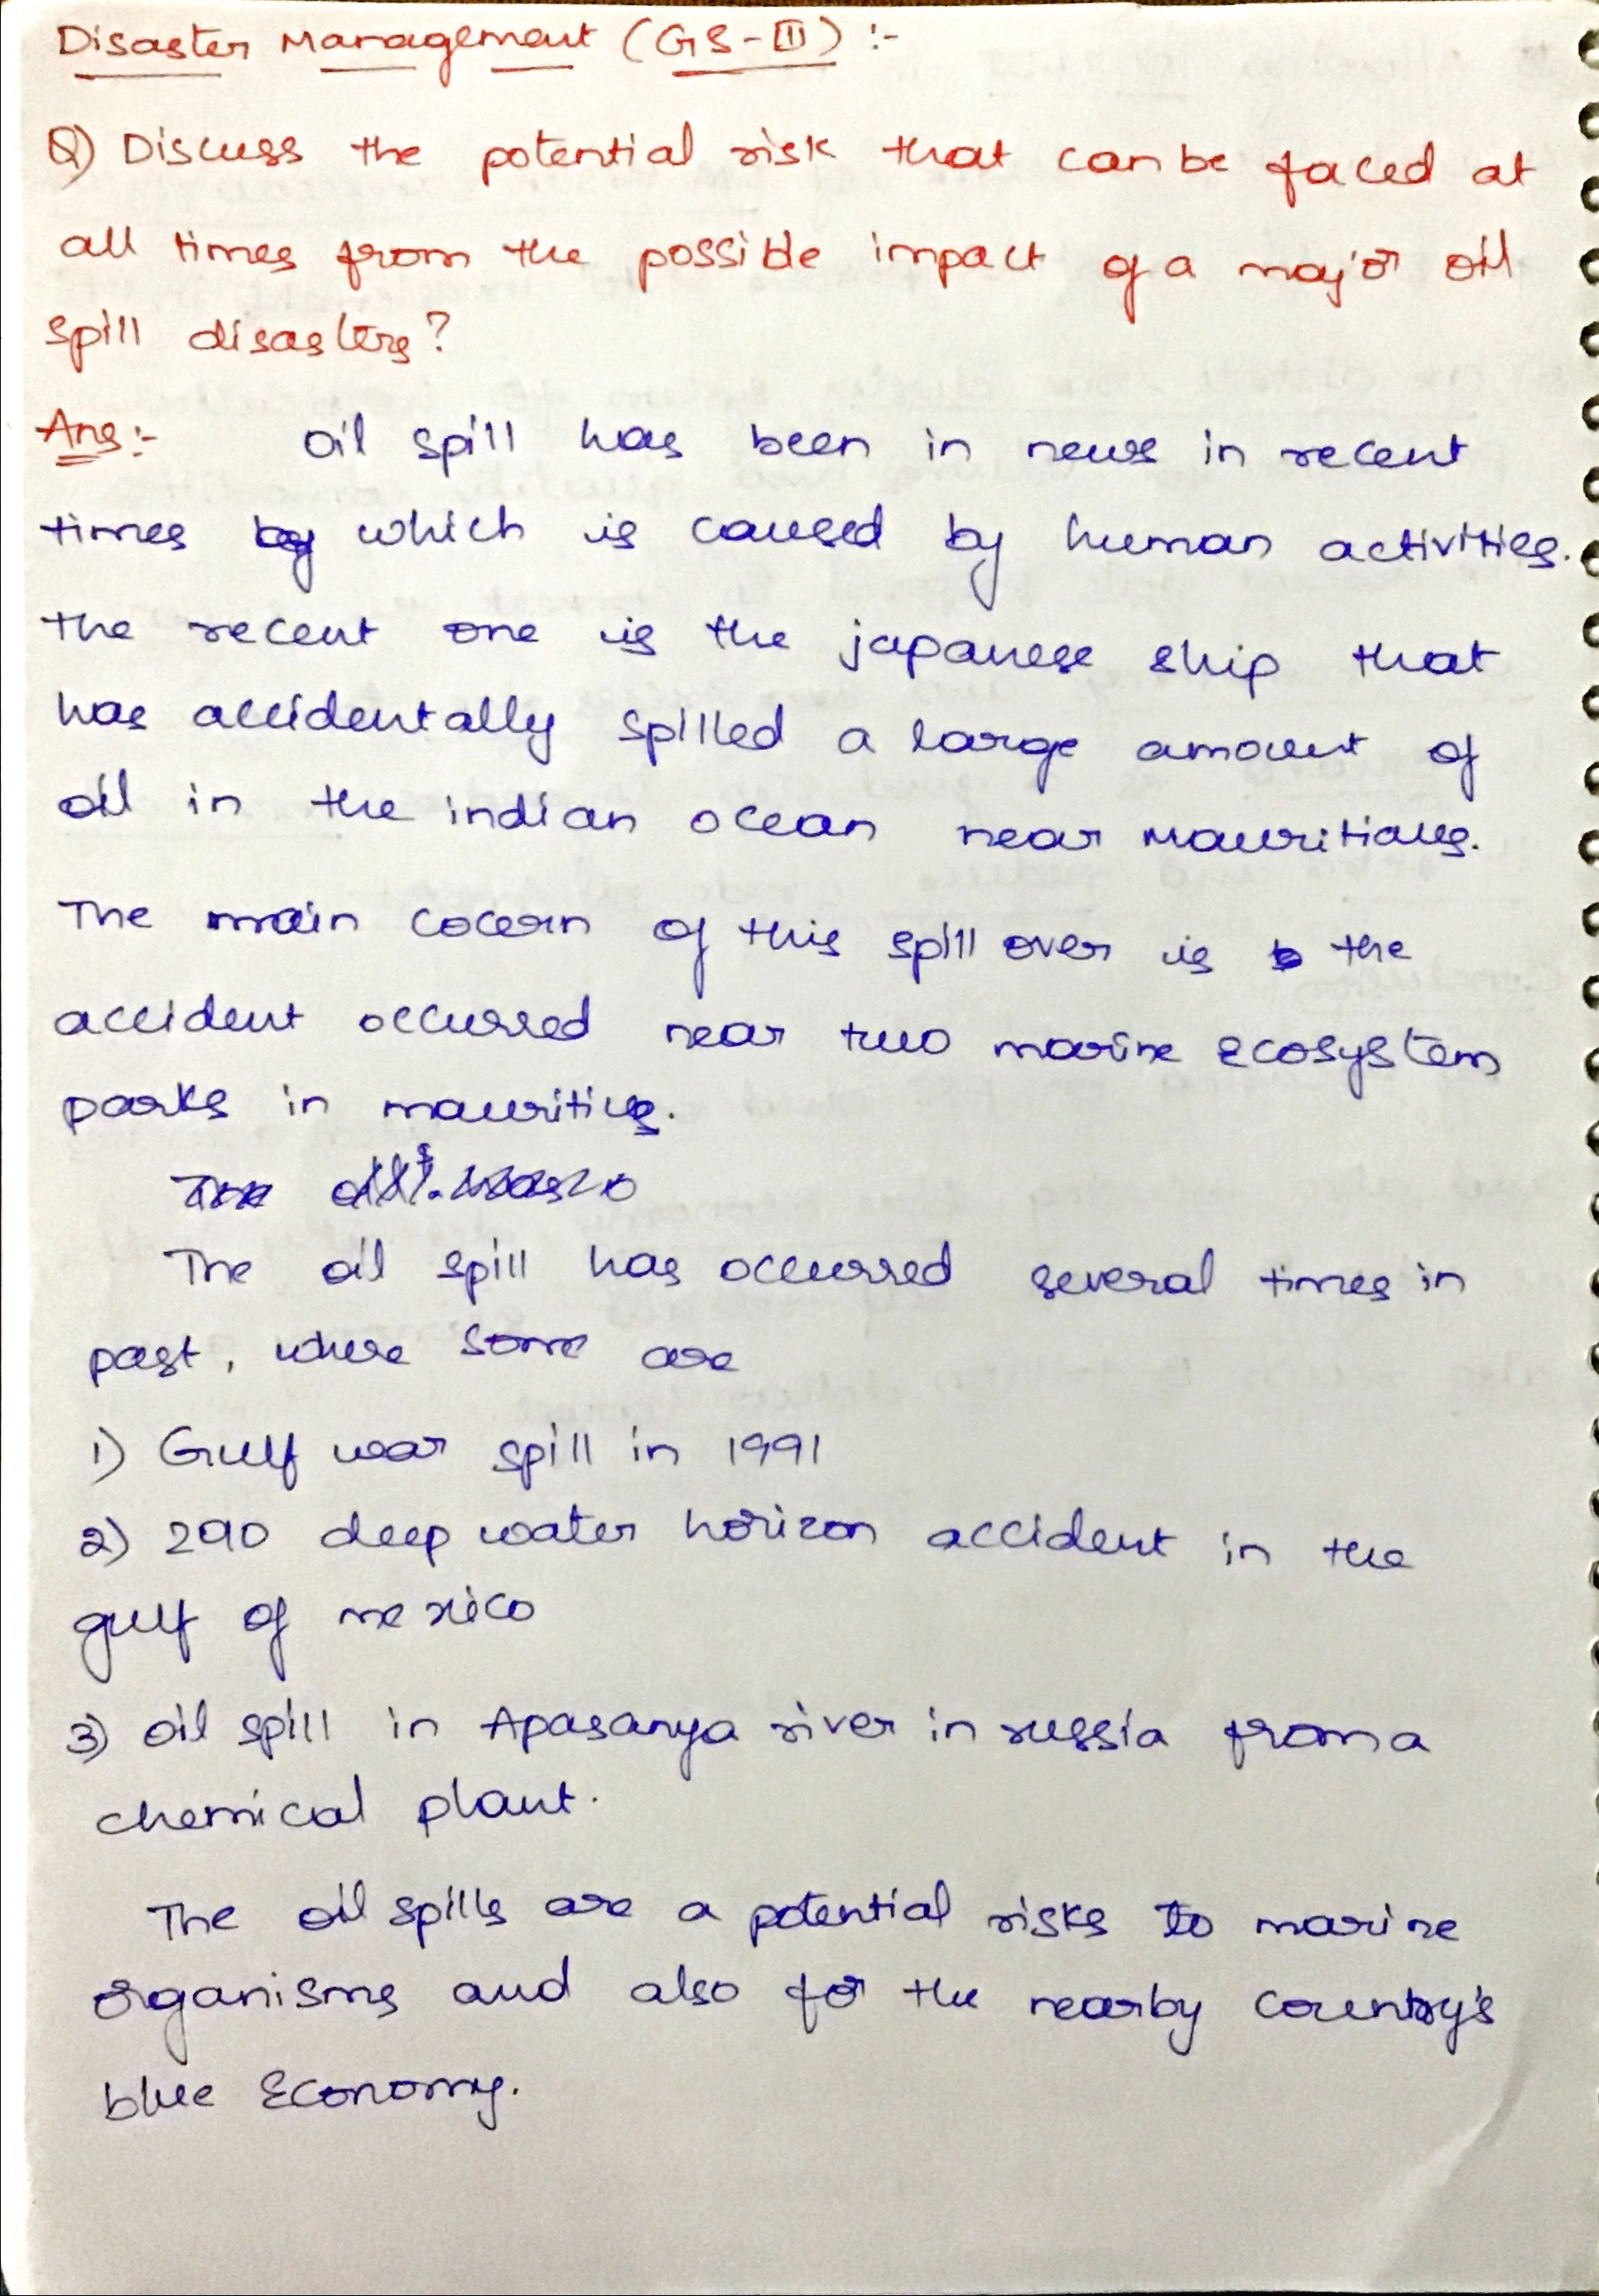 Disaster Management (GS-III) :-
Q) Discuss the potential risk that can be faced at
all times from the possible impact of a major oil
spill disasters?
Ans:- Oil spill has been in news in recent
times by which is caused by human activities.
The recent one is the japanese ship that
has accidentally spilled a large amount of
oil in the indian ocean near Mauritiaus.
The main cocern of this spill over is the
accident occurred near two marine Ecosystem
parks in mauritius.
The
The oil spill has occurred several times in
past, where some are
1) Gulf war spill in 1991
2) 2010 deep water horizon accident in the
gulf of mexico
3) oil spill in Apasanya river in russia from a
chemical plant.
The oil spills are a potential risks to marine
organisms and also for the nearby country's
blue Economy.